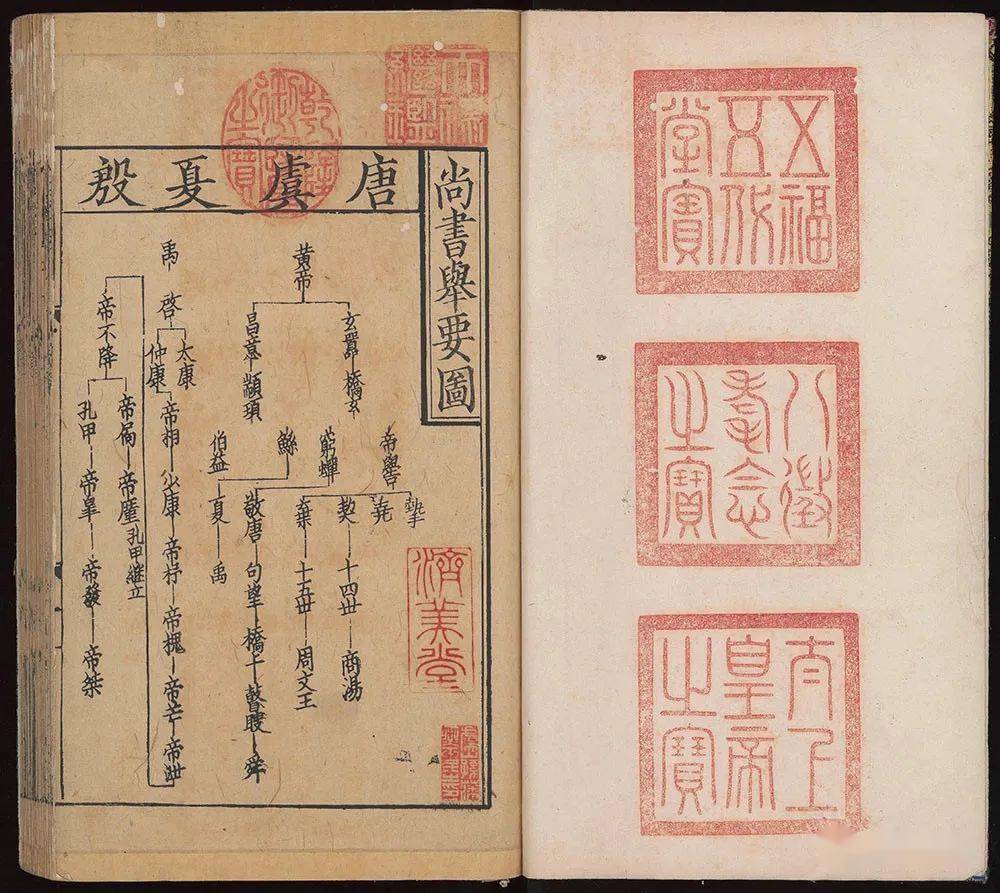 五福五代堂寶
八徵耄念之寶
太上皇帝之寶
天祿繼鑑
乾隆御覽之寶
尚書舉要圖
唐虞夏殷
黄帝
玄囂 橋玄
昌意 顓頊
帝嚳
摯
堯
契 十四世 商湯
棄 十五世 周文王
窮蟬
敬唐 句望 橋牛 瞽瞍 舜
鯀
伯益
夏 禹
禹
啓
太康
仲康
帝相 少康 帝杼 帝槐 帝芒 帝泄
帝不降
帝扃 帝廑 孔甲繼立
孔甲 帝皋 帝發 帝桀
濟美堂